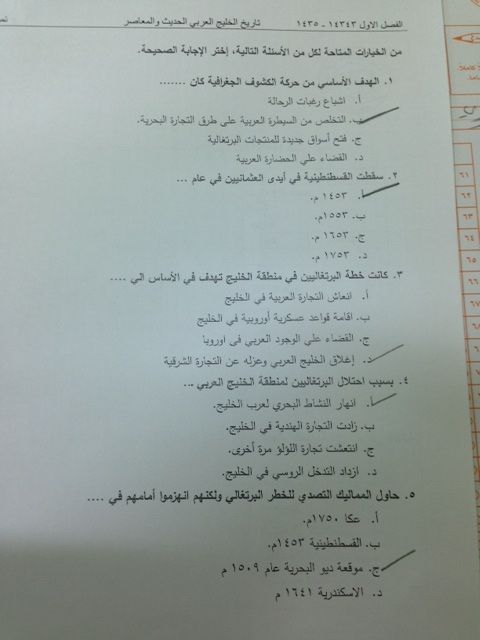 الفصل الاول ١٤٣٤٣ - ١٤٣٥ تاريخ الخليج العربي الحديث والمعاصر
من الخيارات المتاحة لكل من الأسئلة التالية، إختر الإجابة الصحيحة.
١. الهدف الأساسي من حركة الكشوف الجغرافية كان .......
أ. اشباع رغبات الرحالة
ب. التخلص من السيطرة العربية علي طرق التجارة البحرية.
ج. فتح أسواق جديدة للمنتجات البرتغالية
د. القضاء علي الحضارة العربية
٢. سقطت القسطنطينية في أيدى العثمانيين في عام ...
أ. ١٤٥٣ م.
ب. ١٥٥٣م.
ج. ١٦٥٣ م.
د. ١٧٥٣ م.
٣. كانت خطة البرتغاليين في منطقة الخليج تهدف في الأساس الي ....
أ. انعاش التجارة العربية في الخليج
ب. اقامة قواعد عسكرية أوروبية في الخليج
ج. القضاء علي الوجود العربي فى اوروبا
د. إغلاق الخليج العربي وعزله عن التجارة الشرقية
٤. بسبب احتلال البرتغاليين لمنطقة الخليج العربي ...
أ. انهار النشاط البحري لعرب الخليج.
ب. زادت التجارة الهندية في الخليج.
ج. انتعشت تجارة اللؤلؤ مرة أخرى.
د. ازداد التدخل الروسي في الخليج.
٥. حاول المماليك التصدي للخطر البرتغالي ولكنهم انهزموا أمامهم في ....
أ. عكا ١٧٥٠ م.
ب. القسطنطينية ١٤٥٣م.
ج. موقعة ديو البحرية عام ١٥٠٩ م
د. الاسكندرية ١٦٤١ م
٦١
٦٢
٦٣
٦٤
٦٥